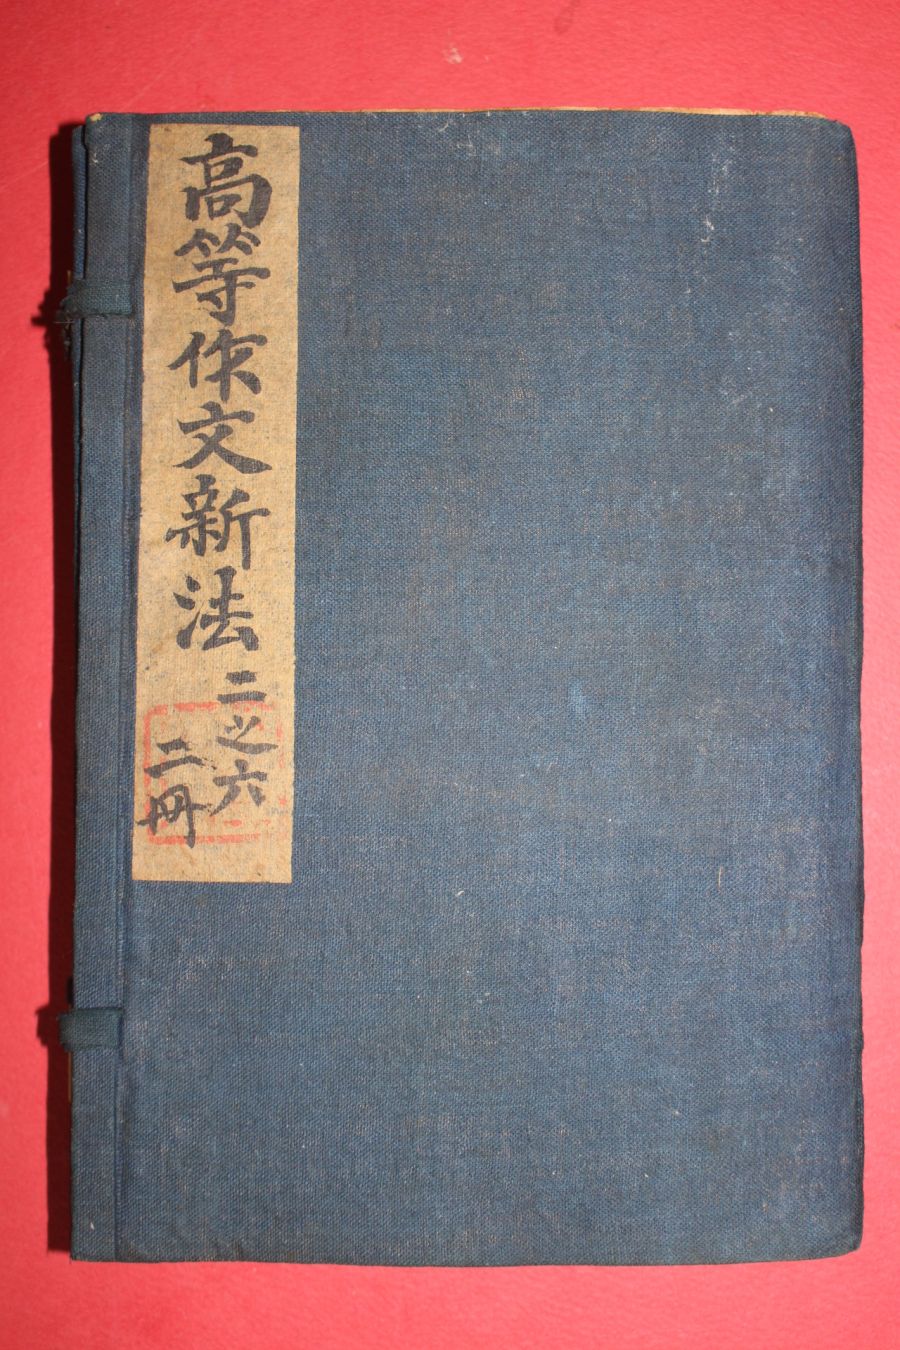 高等作文新法
二之六
二冊